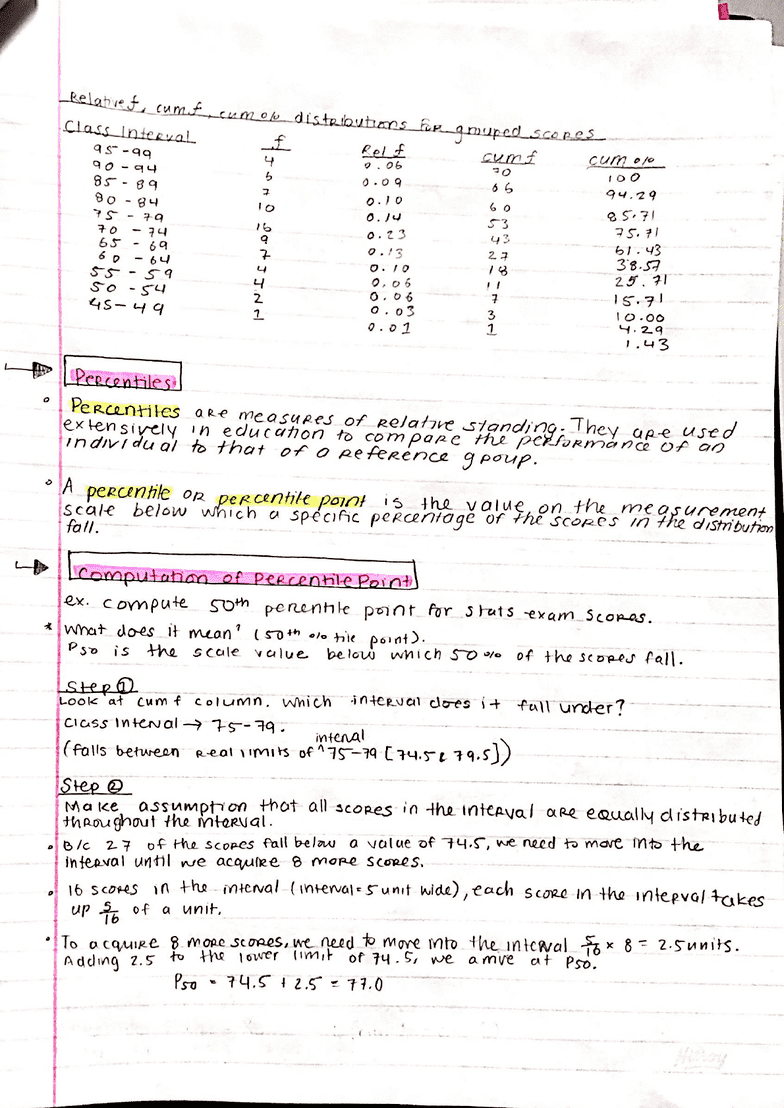 Relative f, cum f, cum % distributions for grouped scores
Class Interval f Rel f cum f cum %
95-99 4 0.06 70 100
90-94 6 0.09 66 94.29
85-89 7 0.10 60 85.71
80-84 10 0.14 53 75.71
75-79 16 0.23 43 61.43
70-74 9 0.13 27 38.57
65-69 7 0.10 18 25.71
60-64 4 0.06 11 15.71
55-59 4 0.06 7 10.00
50-54 2 0.03 3 4.29
45-49 1 0.01 1 1.43
Percentiles
Percentiles are measures of relative standing. They are used
extensively in education to compare the performance of an
individual to that of a reference group.
A percentile or percentile point is the value on the measurement
scale below which a specific percentage of the scores in the distribution
fall.
Computation of Percentile Point
ex. compute 50th percentile point for stats exam scores.
* What does it mean? (50th % tile point).
P50 is the scale value below which 50% of the scores fall.
Step ①
Look at cum f column. Which interval does it fall under?
Class Interval → 75-79.
(falls between real limits of ^interval 75-79 [74.5 & 79.5])
Step ②
Make assumption that all scores in the interval are equally distributed
throughout the interval.
• B/c 27 of the scores fall below a value of 74.5, we need to move into the
interval until we acquire 8 more scores.
• 16 scores in the interval (interval = 5 unit wide), each score in the interval takes
up 5/16 of a unit.
• To acquire 8 more scores, we need to move into the interval 5/16 x 8 = 2.5 units.
Adding 2.5 to the lower limit of 74.5, we arrive at P50.
P50 = 74.5 + 2.5 = 77.0
Hilroy